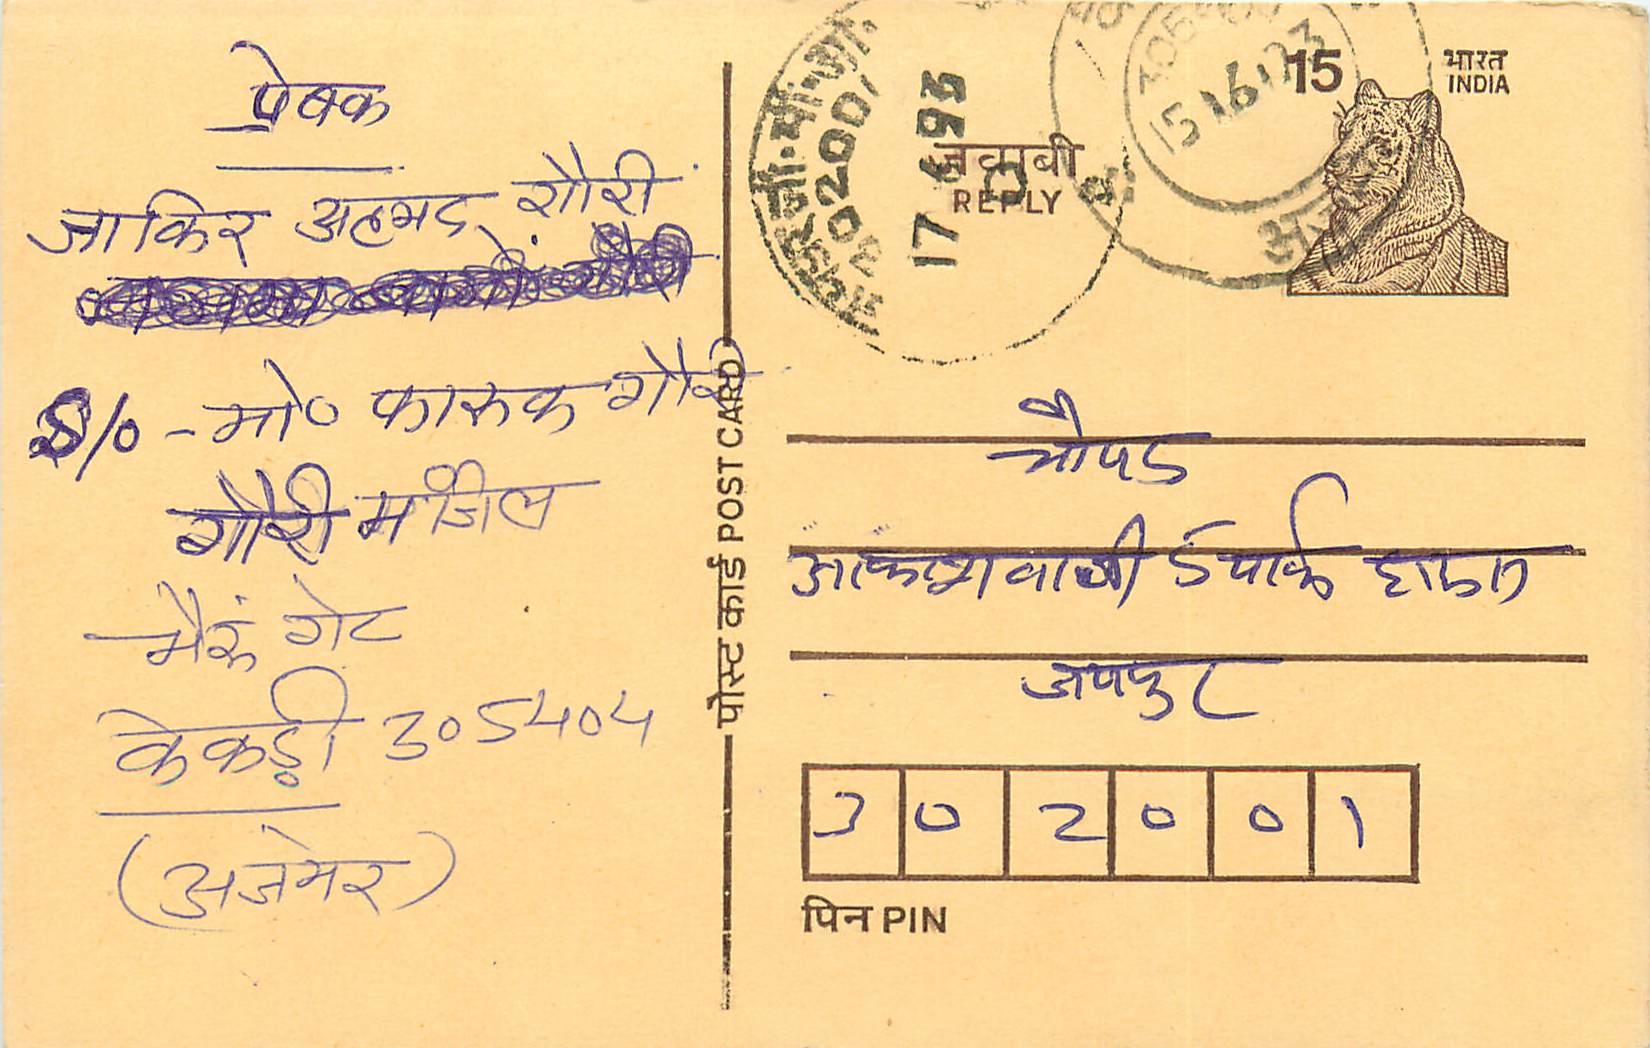 प्रेषक
जाकिर अहमद गौरी
S/o - मो० फारूक गौरी
गौरी मंजिल
भैरुं गेट
केकड़ी 305404
(अजमेर)
पोस्ट कार्ड POST CARD
जयपुर जी.पी.ओ.
302001
17 6 93
जवाबी
REPLY
15 6 93
15
भारत
INDIA
चौपड
आकाशवाणी
जयपुर
3 0 2 0 0 1
पिन PIN